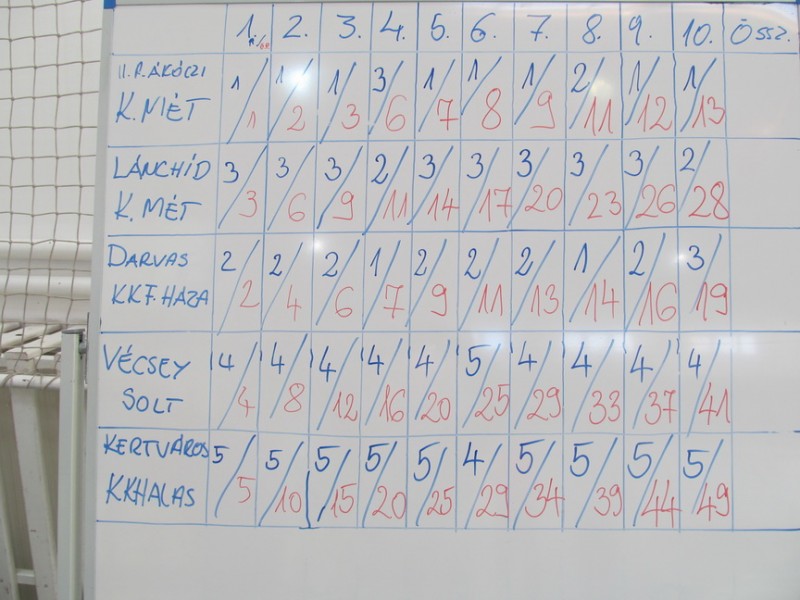 1. 2. 3. 4. 5. 6. 7. 8. 9. 10. ÖSSZ.
II. RÁKÓCZI
K. MÉT 1/1 1/2 1/3 3/6 1/7 1/8 1/9 2/11 1/12 1/13
LÁNCHÍD
K. MÉT 3/3 3/6 3/9 2/11 3/14 3/17 3/20 3/23 3/26 2/28
DARVAS
KKF. HÁZA 2/2 2/4 2/6 1/7 2/9 2/11 2/13 1/14 2/16 3/19
VÉCSEY
SOLT 4/4 4/8 4/12 4/16 4/20 5/25 4/29 4/33 4/37 4/41
KERTVÁROS
KKHALAS 5/5 5/10 5/15 5/20 5/25 4/29 5/34 5/39 5/44 5/49